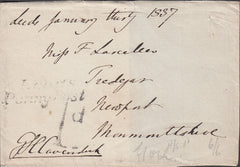 Leeds January thirty 1837
Miss F Lascelles
Tredegar
Newport
Monmouthshire
Leeds
Penny Post